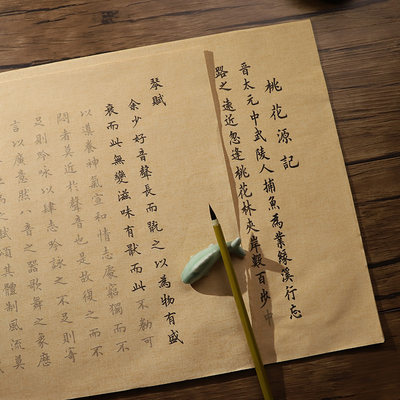 桃花源記
晉太元中武陵人捕魚為業緣溪行忘
路之遠近忽逢桃花林夾岸數百步中
琴賦
余少好音聲長而翫之以為物有盛
衰而此無變滋味有猒而此不勌可
以導養神氣宣和情志處窮獨而不
悶者莫近於音聲也是故復之而不
足則吟詠以肆志吟詠之不足則寄
言以廣意然八音之器歌舞之象歷
為之賦頌其體制風流莫